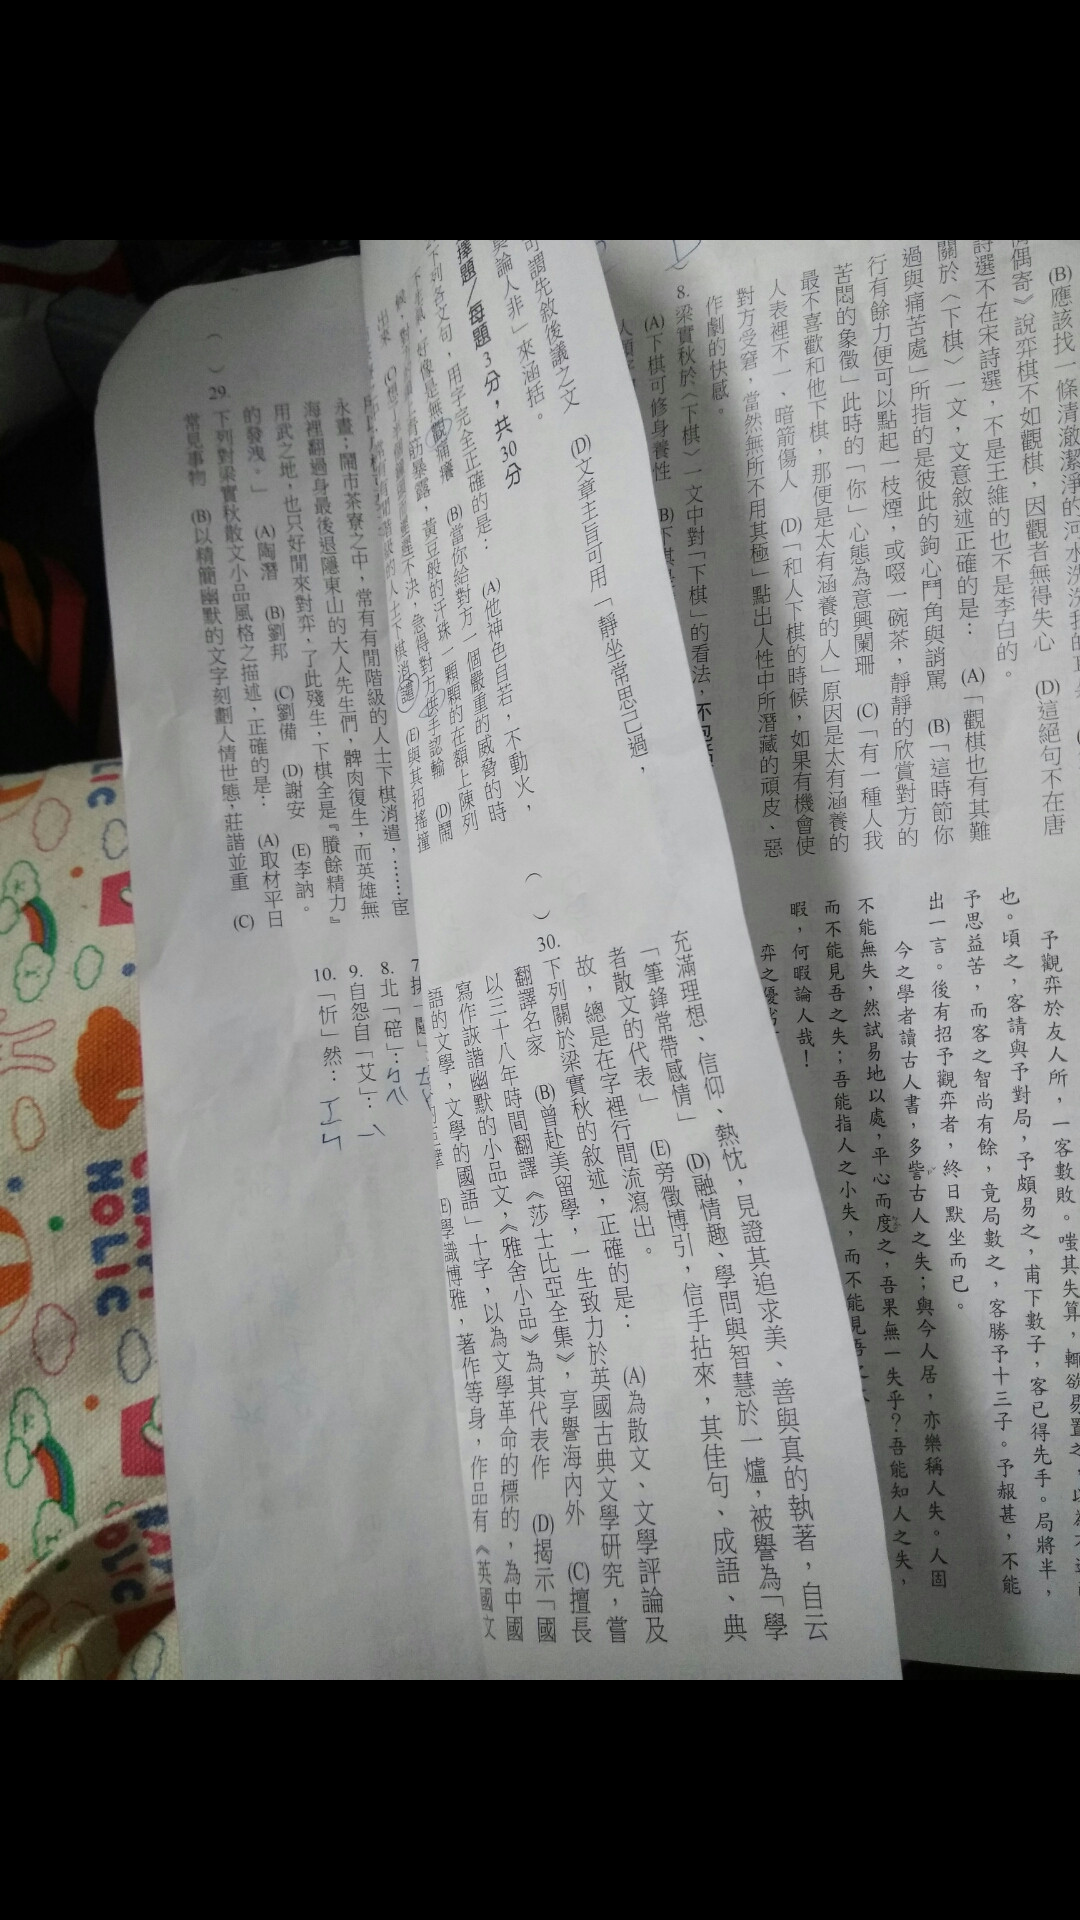 (B)應該找一條清澈潔淨的河水洗
偶寄》說弈棋不如觀棋，因觀者無得失心 (D)這絕句不在唐
詩選不在宋詩選，不是王維的也不是李白的。
關於〈下棋〉一文，文意敘述正確的是： (A)「觀棋也有其難
過與痛苦處」所指的是彼此的鉤心鬥角與誚罵 (B)「這時節你
行有餘力便可以點起一枝煙，或啜一碗茶，靜靜的欣賞對方的
苦悶的象徵」此時的「你」心態為意興闌珊 (C)「有一種人我
最不喜歡和他下棋，那便是太有涵養的人」原因是太有涵養的
人表裡不一、暗箭傷人 (D)「和人下棋的時候，如果有機會使
對方受窘，當然無所不用其極」點出人性中所潛藏的頑皮、惡
作劇的快感。
8. 梁實秋於〈下棋〉一文中對「下棋」的看法，不包
(A)下棋可修身養性 (B)下棋
予觀弈於友人所，一客數敗。嗤其失算，輒欲易置之，以為不
也。頃之，客請與予對局，予頗易之，甫下數子，客已得先手。局將半，
予思益苦，而客之智尚有餘，竟局數之，客勝予十三子。予赧甚，不能
出一言。後有招予觀弈者，終日默坐而已。
今之學者讀古人書，多訾古人之失；與今人居，亦樂稱人失。人固
不能無失，然試易地以處，平心而度之，吾果無一失乎？吾能知人之失，
而不能見吾之失；吾能指人之小失，而不能見吾
暇，何暇論人哉！
弈之優劣
可謂先敘後議之文 (D)文章主旨可用「靜坐常思己過，
論人非」來涵括。
擇題／每題 3 分，共 30 分
下列各文句，用字完全正確的是： (A)他神色自若，不動火，
不生氣，好像是無關痛癢 (B)當你給對方一個嚴重的威脅的時
候，對方的額上青筋暴露，黃豆般的汗珠一顆顆的在額上陳列
出來
不決，急得對方供手認輸 (D)鬧
的人士下棋消譴 (E)與其招搖撞
充滿理想、信仰、熱忱，見證其追求美、善與真的執著，自云
「筆鋒常帶感情」 (D)融情趣、學問與智慧於一爐，被譽為「學
者散文的代表」 (E)旁徵博引，信手拈來，其佳句、成語、典
故，總是在字裡行間流瀉出。
( ) 30. 下列關於梁實秋的敘述，正確的是： (A)為散文、文學評論及
翻譯名家 (B)曾赴美留學，一生致力於英國古典文學研究，嘗
以三十八年時間翻譯《莎士比亞全集》，享譽海內外 (C)擅長
寫作詼諧幽默的小品文，《雅舍小品》為其代表作 (D)揭示「國
語的文學，文學的國語」十字，以為文學革命的標的，為中國
(E)學識博雅，著作等身，作品有《英國文
有閒階級的人士下棋消遣，……宦
永晝；鬧市茶寮之中，常有有閒階級的人士下棋消遣，……宦
海裡翻過身最後退隱東山的大人先生們，髀肉復生，而英雄無
用武之地，也只好閒來對弈，了此殘生，下棋全是『賸餘精力』
的發洩。」 (A)陶潛 (B)劉邦 (C)劉備 (D)謝安 (E)李訥。
( ) 29. 下列對梁實秋散文小品風格之描述，正確的是： (A)取材平日
常見事物 (B)以精簡幽默的文字刻劃人情世態，莊諧並重 (C)
8. 北「碚」：ㄅㄟ
9. 自怨自「艾」：ㄧ
10. 「忻」然：ㄒㄧㄣ